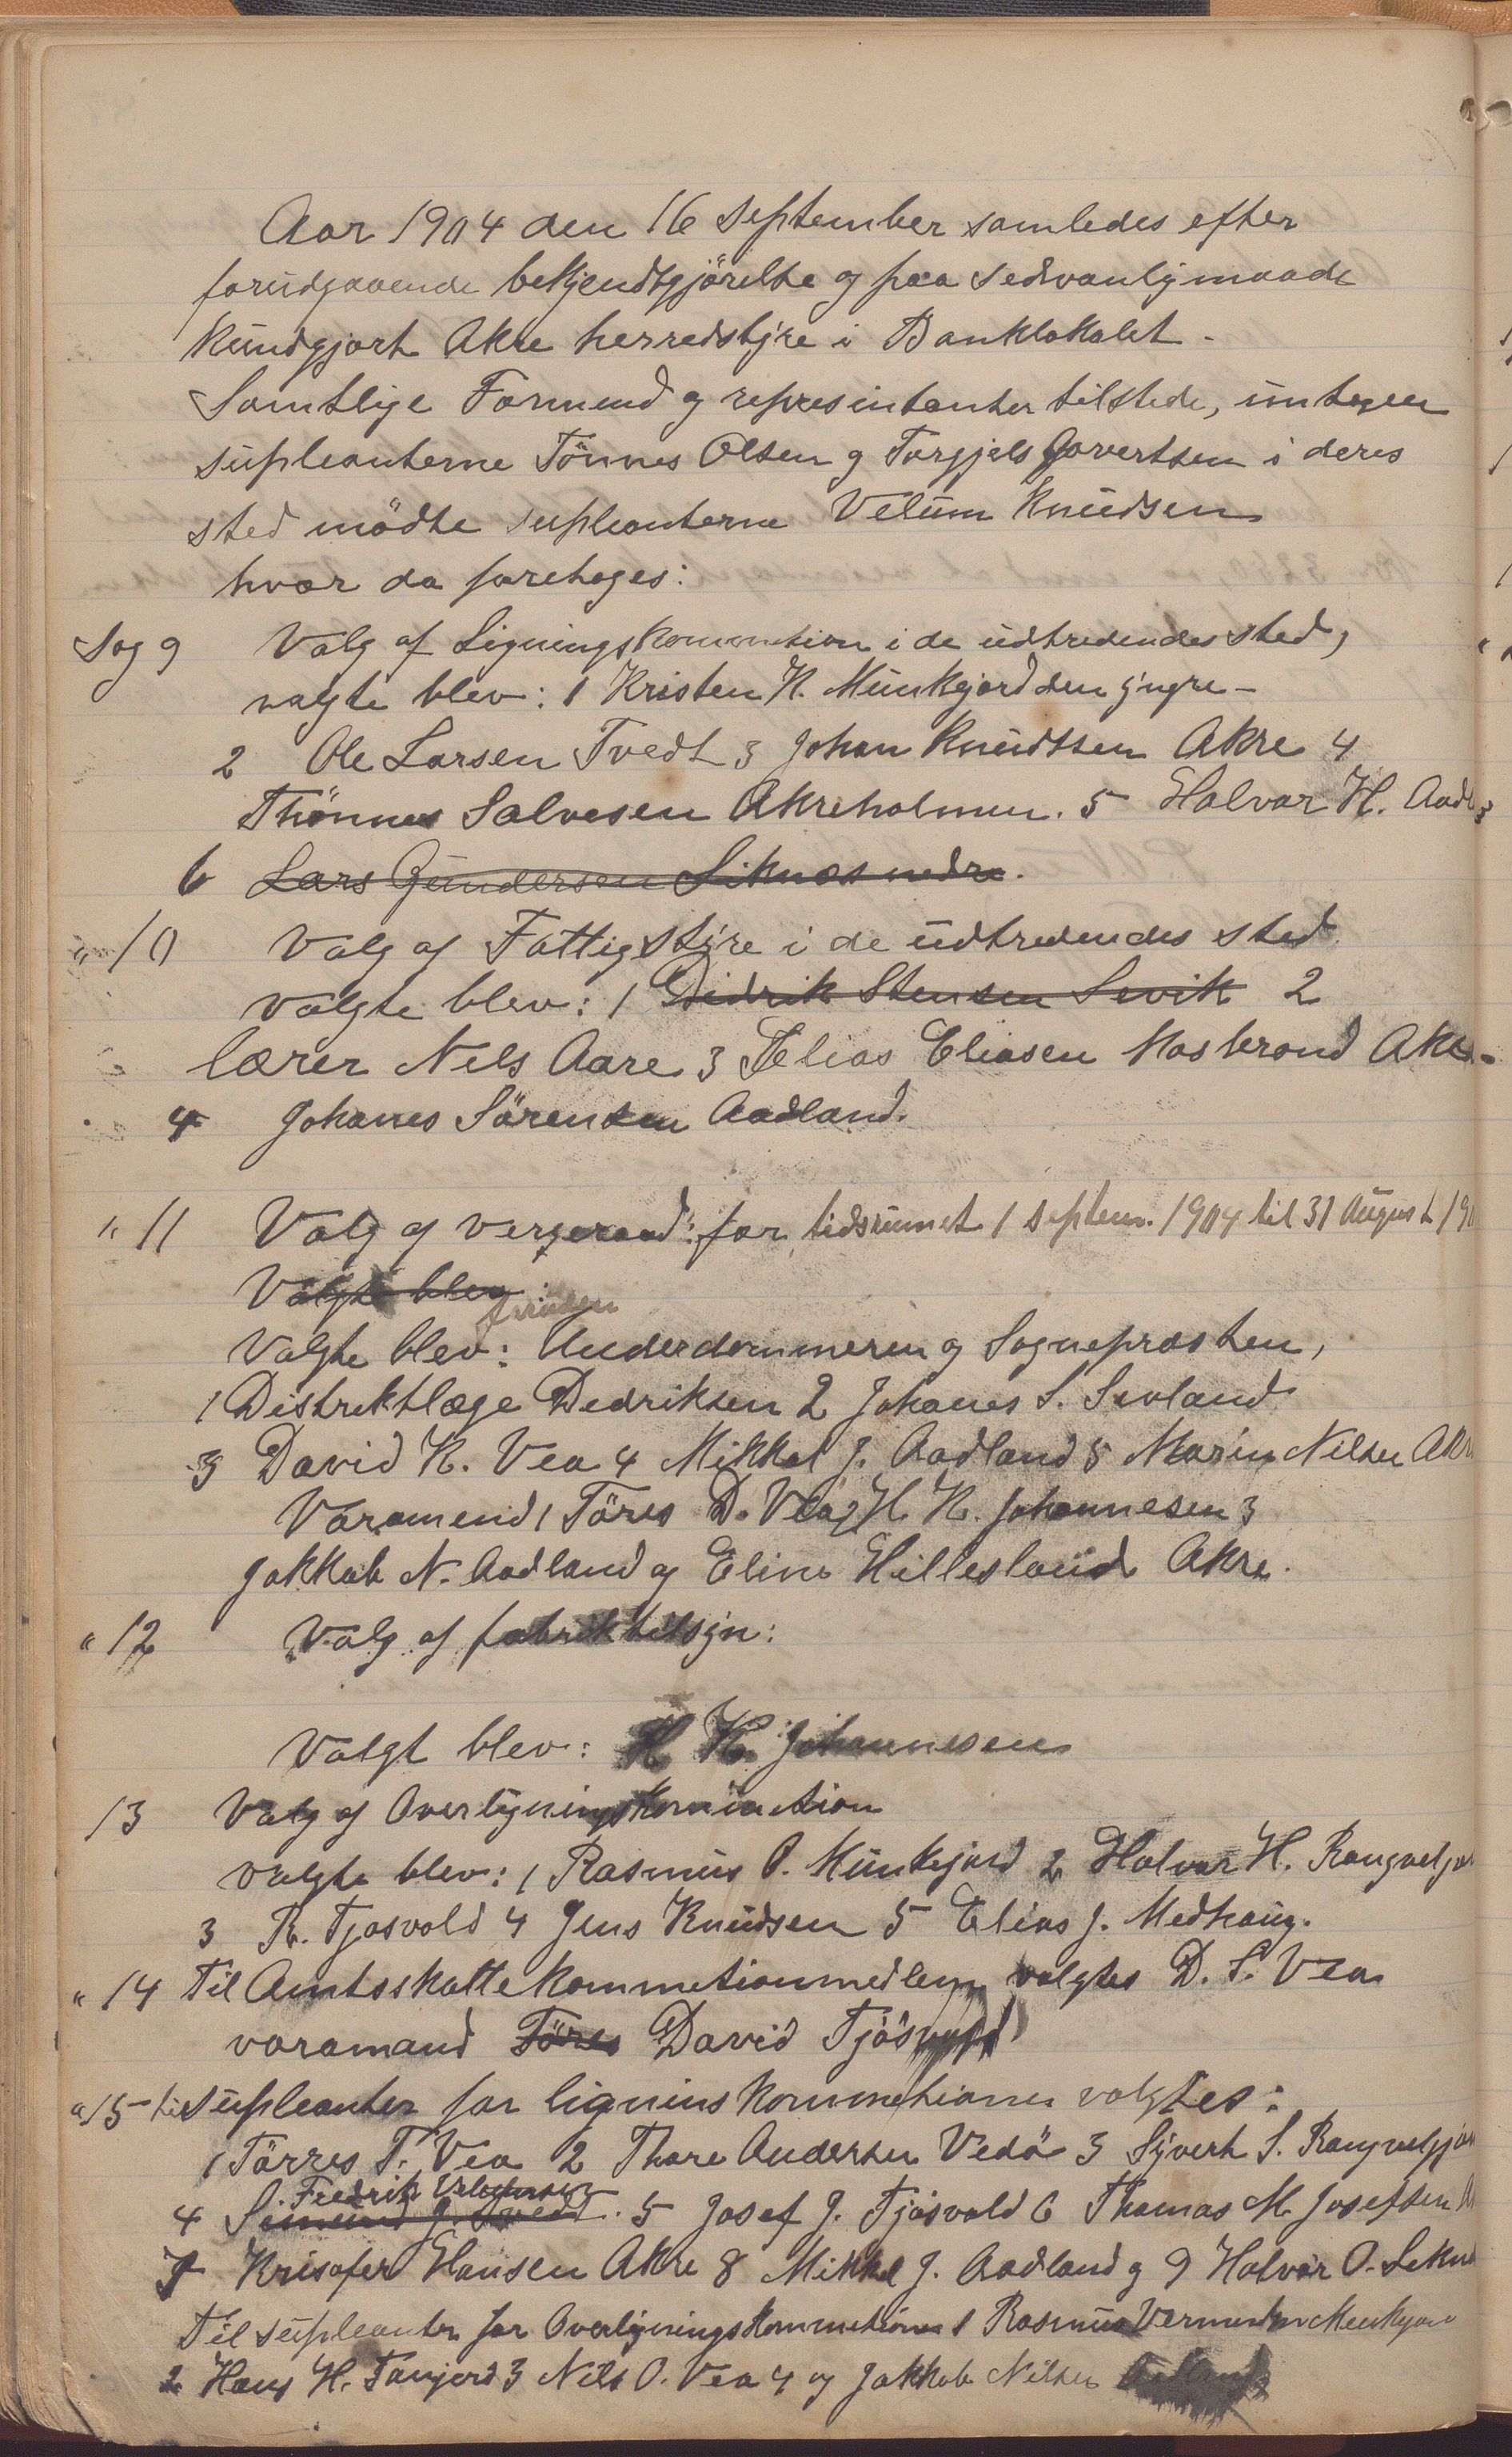 Aar 1904 den 16 September samledes efter
forudgaaende bekjendtgjörelse og paa sedvanlig maade
kundgjort Akre herredstyre i Banklokalet.
Samtlige Formend og represintanter tilstede, untagen
supleanterne Tönnes Olsen og Torgjels Govertsen i deres
sted mödte supleanterne Velum Knudsen
hvor da foretoges:
Sag 9 Valg af Ligningskommetion i de udtredendes sted,
valgte blev: 1 Kristen K. Munkejord den yngre -
2 Ole Larsen Tvedt 3 Johan Knudtsen Akre 4
Thönnes Salvesen Akreholmen. 5 Halvar H. Aadl
6 Lars Gundersen Liknes nedre.
" 10 Valg af Fattigstyre i de udtredendes sted
valgte blev: 1 Didrik Stensen Sevik 2
lærer Nels Aare 3 Elias Eliasen Mosbrond Akre
4 Johanes Sörensen Aadland.
" 11 Valg af vergeraad: for tidsrumet 1 septem. 1904 til 31 August 190
Valgte blev
foruden
Valgte blev: Underdommeren og Sognepræsten,
1 Distriktlæge Dedriksen 2 Johanes S. Sevland
3 David K. Vea 4 Mikkal J. Aadland 5 Marin Nilsen Akr
Varamend 1 Töres D. Vea 2 H. K. Johannesen 3
Jakkob N. Aadland og Eline Hillesland Akre.
" 12 Valg af fabriktilsyn:
Valgt blev: H K. Johannesen
13 Valg af Overligningskommetion
valgte blev: 1 Rasmus O. Munkejord 2 Halvar H. Rangvelj
3 R. Tjosvold 4 Jens Knudsen 5 Elias J. Medhaug.
" 14 Til Amtsskattekommetionmedlem valgtes D. S. Vea
varamand Töres David Tjösvold
" 15 til supleanter for lignins kommetionen valgtes:
1 Törres T. Vea 2 Thore Andersen Vedö 3 Syvert S. Rangvelgjor
Fredrik
4 Simund J. Tvedt. 5 Josef J. Tjösvold 6 Thomas M. Josefsen
7 Krisofer Hansen Akre 8 Mikkel J. Aadland og 9 Halvor O. Sekn
Til supleanter for Overligningskommetionen 1 Rasmus Munkejord
2 Hans H. 3 Nils O. Vea 4 og Jakkob Nilsen Aadland